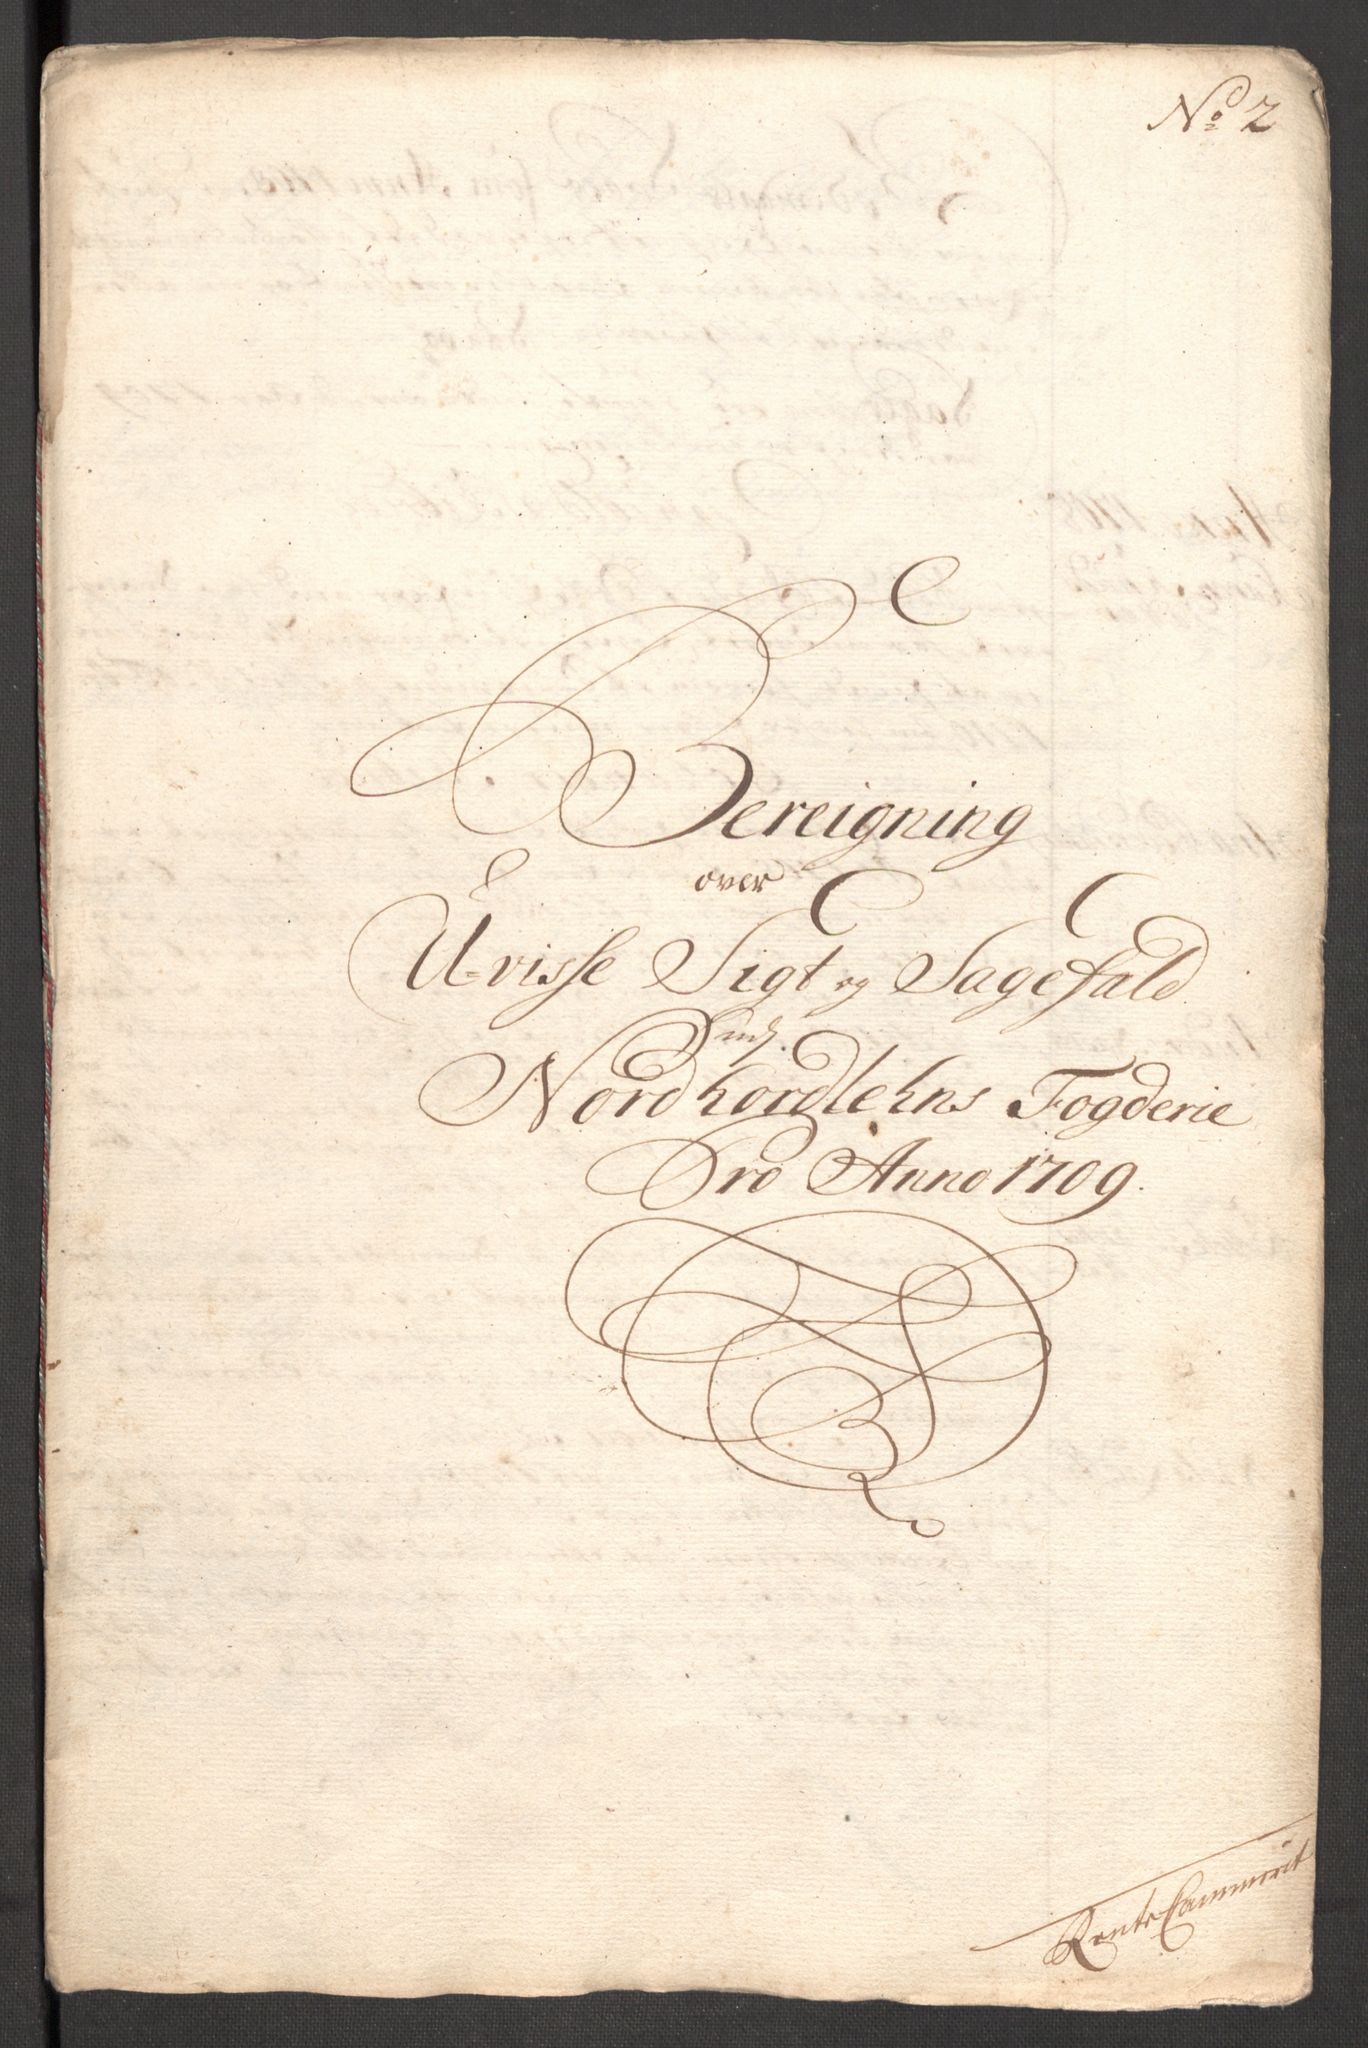 No 2
Bereigning
over
U-visse Sigt og Sagefald
udj
Nordhordlehns Fogderie
Pro Anno 1709.
Rente Cammerit